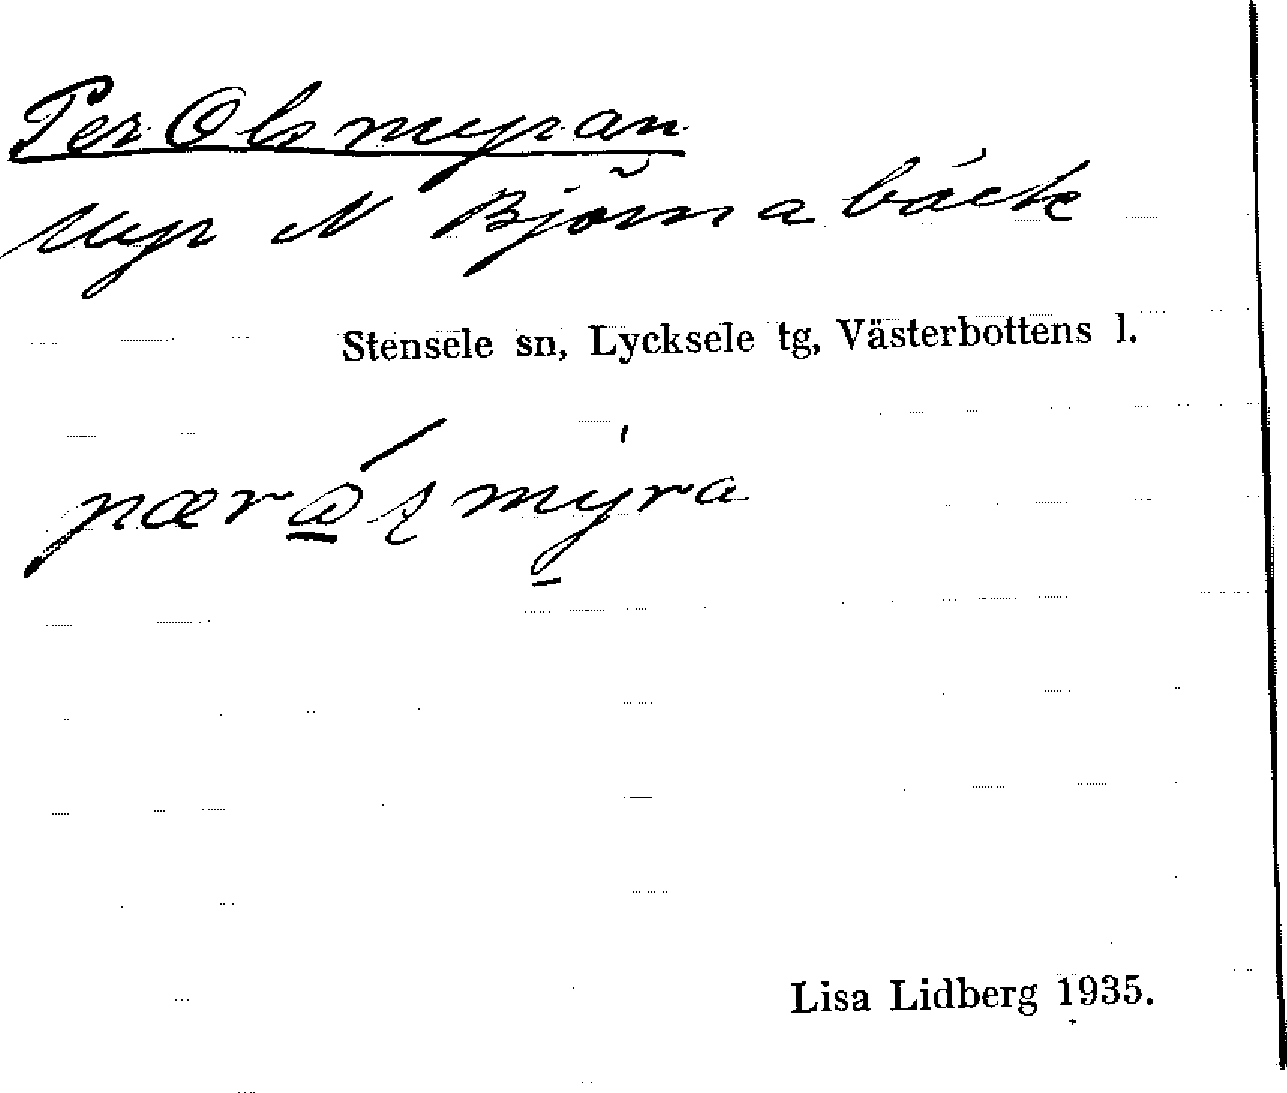 Per Olsmyran
Myr N Björnabäck
Stensele sn, Lycksele tg, Västerbottens l.
pærá̲ʂmy̲̍ra
Lisa Lidberg 1935.